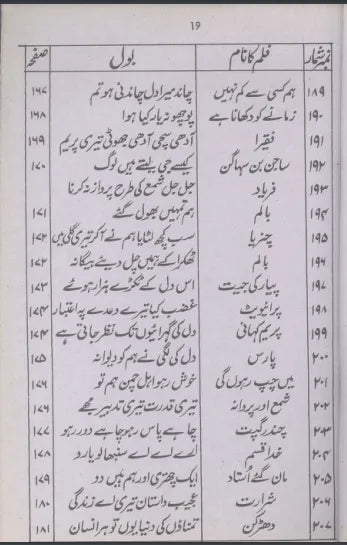 19
نمبر شمار فلم کا نام بول صفحہ
۱۸۹ ہم کسی سے کم نہیں چاند میرا دل چاندنی ہو تم ۱۶۷
۱۹۰ زمانے کو دکھانا ہے پوچھو نہ یار کیا ہوا ۱۶۸
۱۹۱ فقیرا آدھی سچی آدھی جھوٹی تیری پریم ۱۶۹
۱۹۲ ساجن بن سہاگن کیسے جی لیتے ہیں لوگ ۱۷۰
۱۹۳ فریاد جل جل شمع کی طرح پرواز نہ کرنا
۱۹۴ بالم ہم تمہیں بھول گئے ۱۷۱
۱۹۵ چنریا سب کچھ لٹایا ہم نے آکر تیری گلی میں ۱۷۲
۱۹۶ بالم ٹھکرا کے ہمیں چل دیئے بیگانہ ۱۷۲
۱۹۷ پیار کی جیت اس دل کے ٹکڑے ہزار ہوئے ۱۷۳
۱۹۸ پرائیویٹ غضب کیا تیرے وعدے پہ اعتبار ۱۷۴
۱۹۹ پریم کہانی دل کی گہرائیوں تک نظر جاتی ہے ۱۷۴
۲۰۰ پارس دل کی لگی نے ہم کو دیوانہ ۱۷۵
۲۰۱ میں چپ رہوں گی خوش رہو اہل چمن ہم تو ۱۷۶
۲۰۲ شمع اور پروانہ تیری قدرت تیری تدبیر مجھے ۱۷۶
۲۰۳ چندر گپت چاہے پاس رہو چاہے دور رہو ۱۷۷
۲۰۴ خدا قسم اے اے اے سنبھالو یارو ۱۷۸
۲۰۵ مان گئے استاد ایک چھتری اور ہم ہیں دو ۱۷۹
۲۰۶ شرارت عجیب داستان تیری اے زندگی ۱۸۰
۲۰۷ دھڑکن تمناؤں کی دنیا یوں تو ہر انسان ۱۸۱